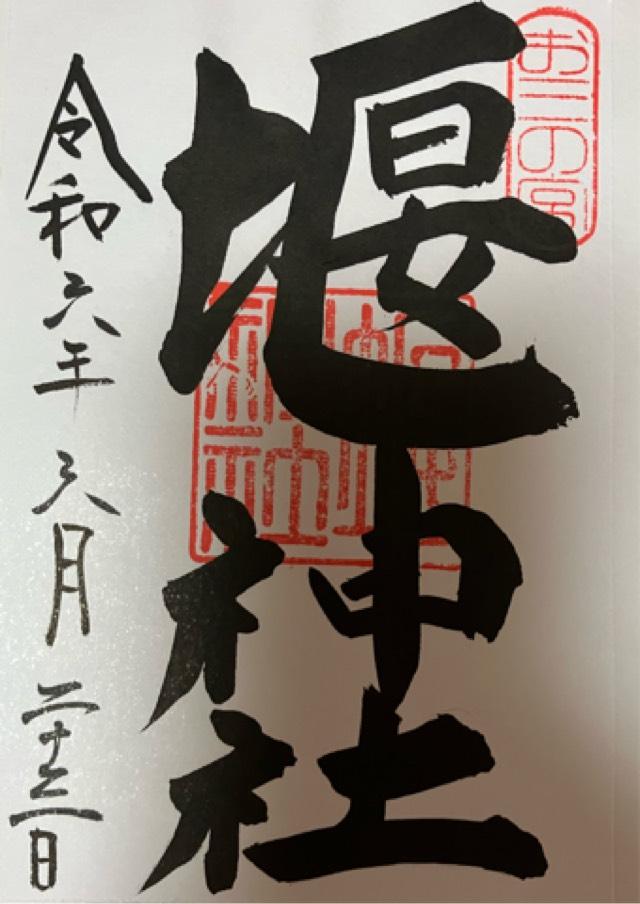 お三の宮
堰神社
令和六年六月二十三日